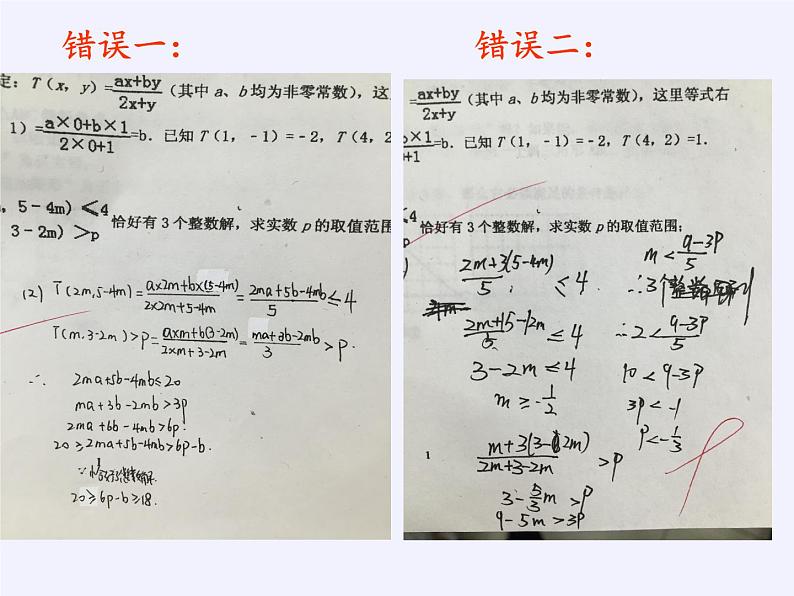 错误一：
定：T（x，y）=ax+by/2x+y（其中 a、b 均为非零常数），这
1）=a×0+b×1/2×0+1=b．已知 T（1，﹣1）=﹣2，T（4，2
，5－4m）≤4
3－2m）>p
恰好有 3 个整数解，求实数 p 的取值范围
(2) T(2m,5-4m)=ax2m+bx(5-4m)/2x2m+5-4m=2ma+5b-4mb/5≤4
T(m,3-2m)>p=axm+b(3-2m)/2xm+3-2m=ma+3b-2mb/3>p.
∴ 2ma+5b-4mb≤20
ma+3b-2mb>3p
2ma+6b-4mb>6p.
20≥2ma+5b-4mb>6p-b.
20≥6p-b≥18.
错误二：
=ax+by/2x+y（其中 a、b 均为非零常数），这里等式右
b×1/0+1=b．已知 T（1，﹣1）=﹣2，T（4，2）=1．
≤4
>p
恰好有 3 个整数解，求实数 p 的取值范围；
2m+3(5-4m)/5≤4
2m+15-12m/5≤4
3-2m≤4
m≥-1/2
m+3(3-2m)/2m+3-2m>p
3-5/3m>p
9-5m>3p
m<9-3p/5
∴3个整数
∴2<9-3p/5
10<9-3p
3p<-1
p<-1/3
1